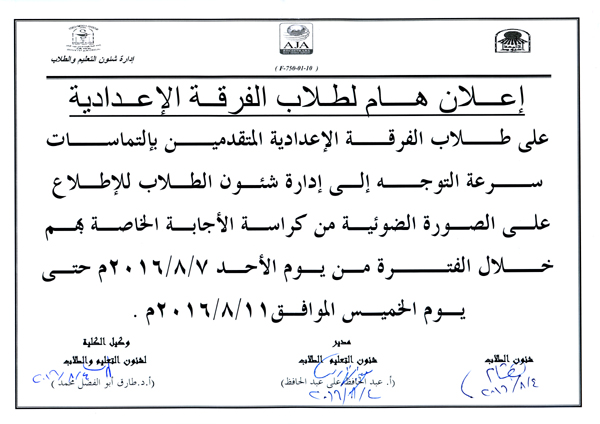 إدارة شئون التعليم والطلاب
AJA
( F-750-01-10 )
إعـــلان هـــام لطــلاب الفرقــة الإعــدادية
على طــلاب الفرقــة الإعدادية المتقدمــين بإلتماســات
ســرعة التوجــه إلــى إدارة شئــون الطــلاب للإطــلاع
علــى الصــورة الضوئيــة مــن كراسـة الأجابـة الخاصـة بهـم
خــلال الفتــرة مــن يــوم الأحــد ٢٠١٦/٨/٧م حتــى
يــوم الخميــس الموافــق٢٠١٦/٨/١١م .
شئون الطلاب
مدير
شئون التعليم الطلاب
وكيل الكلية
لشئون التعليم والطلاب
(أ. عبد الحافظ على عبد الحافظ)
(أ.د.طارق أبو الفضل محمد )
٢٠١٦/٨/٤